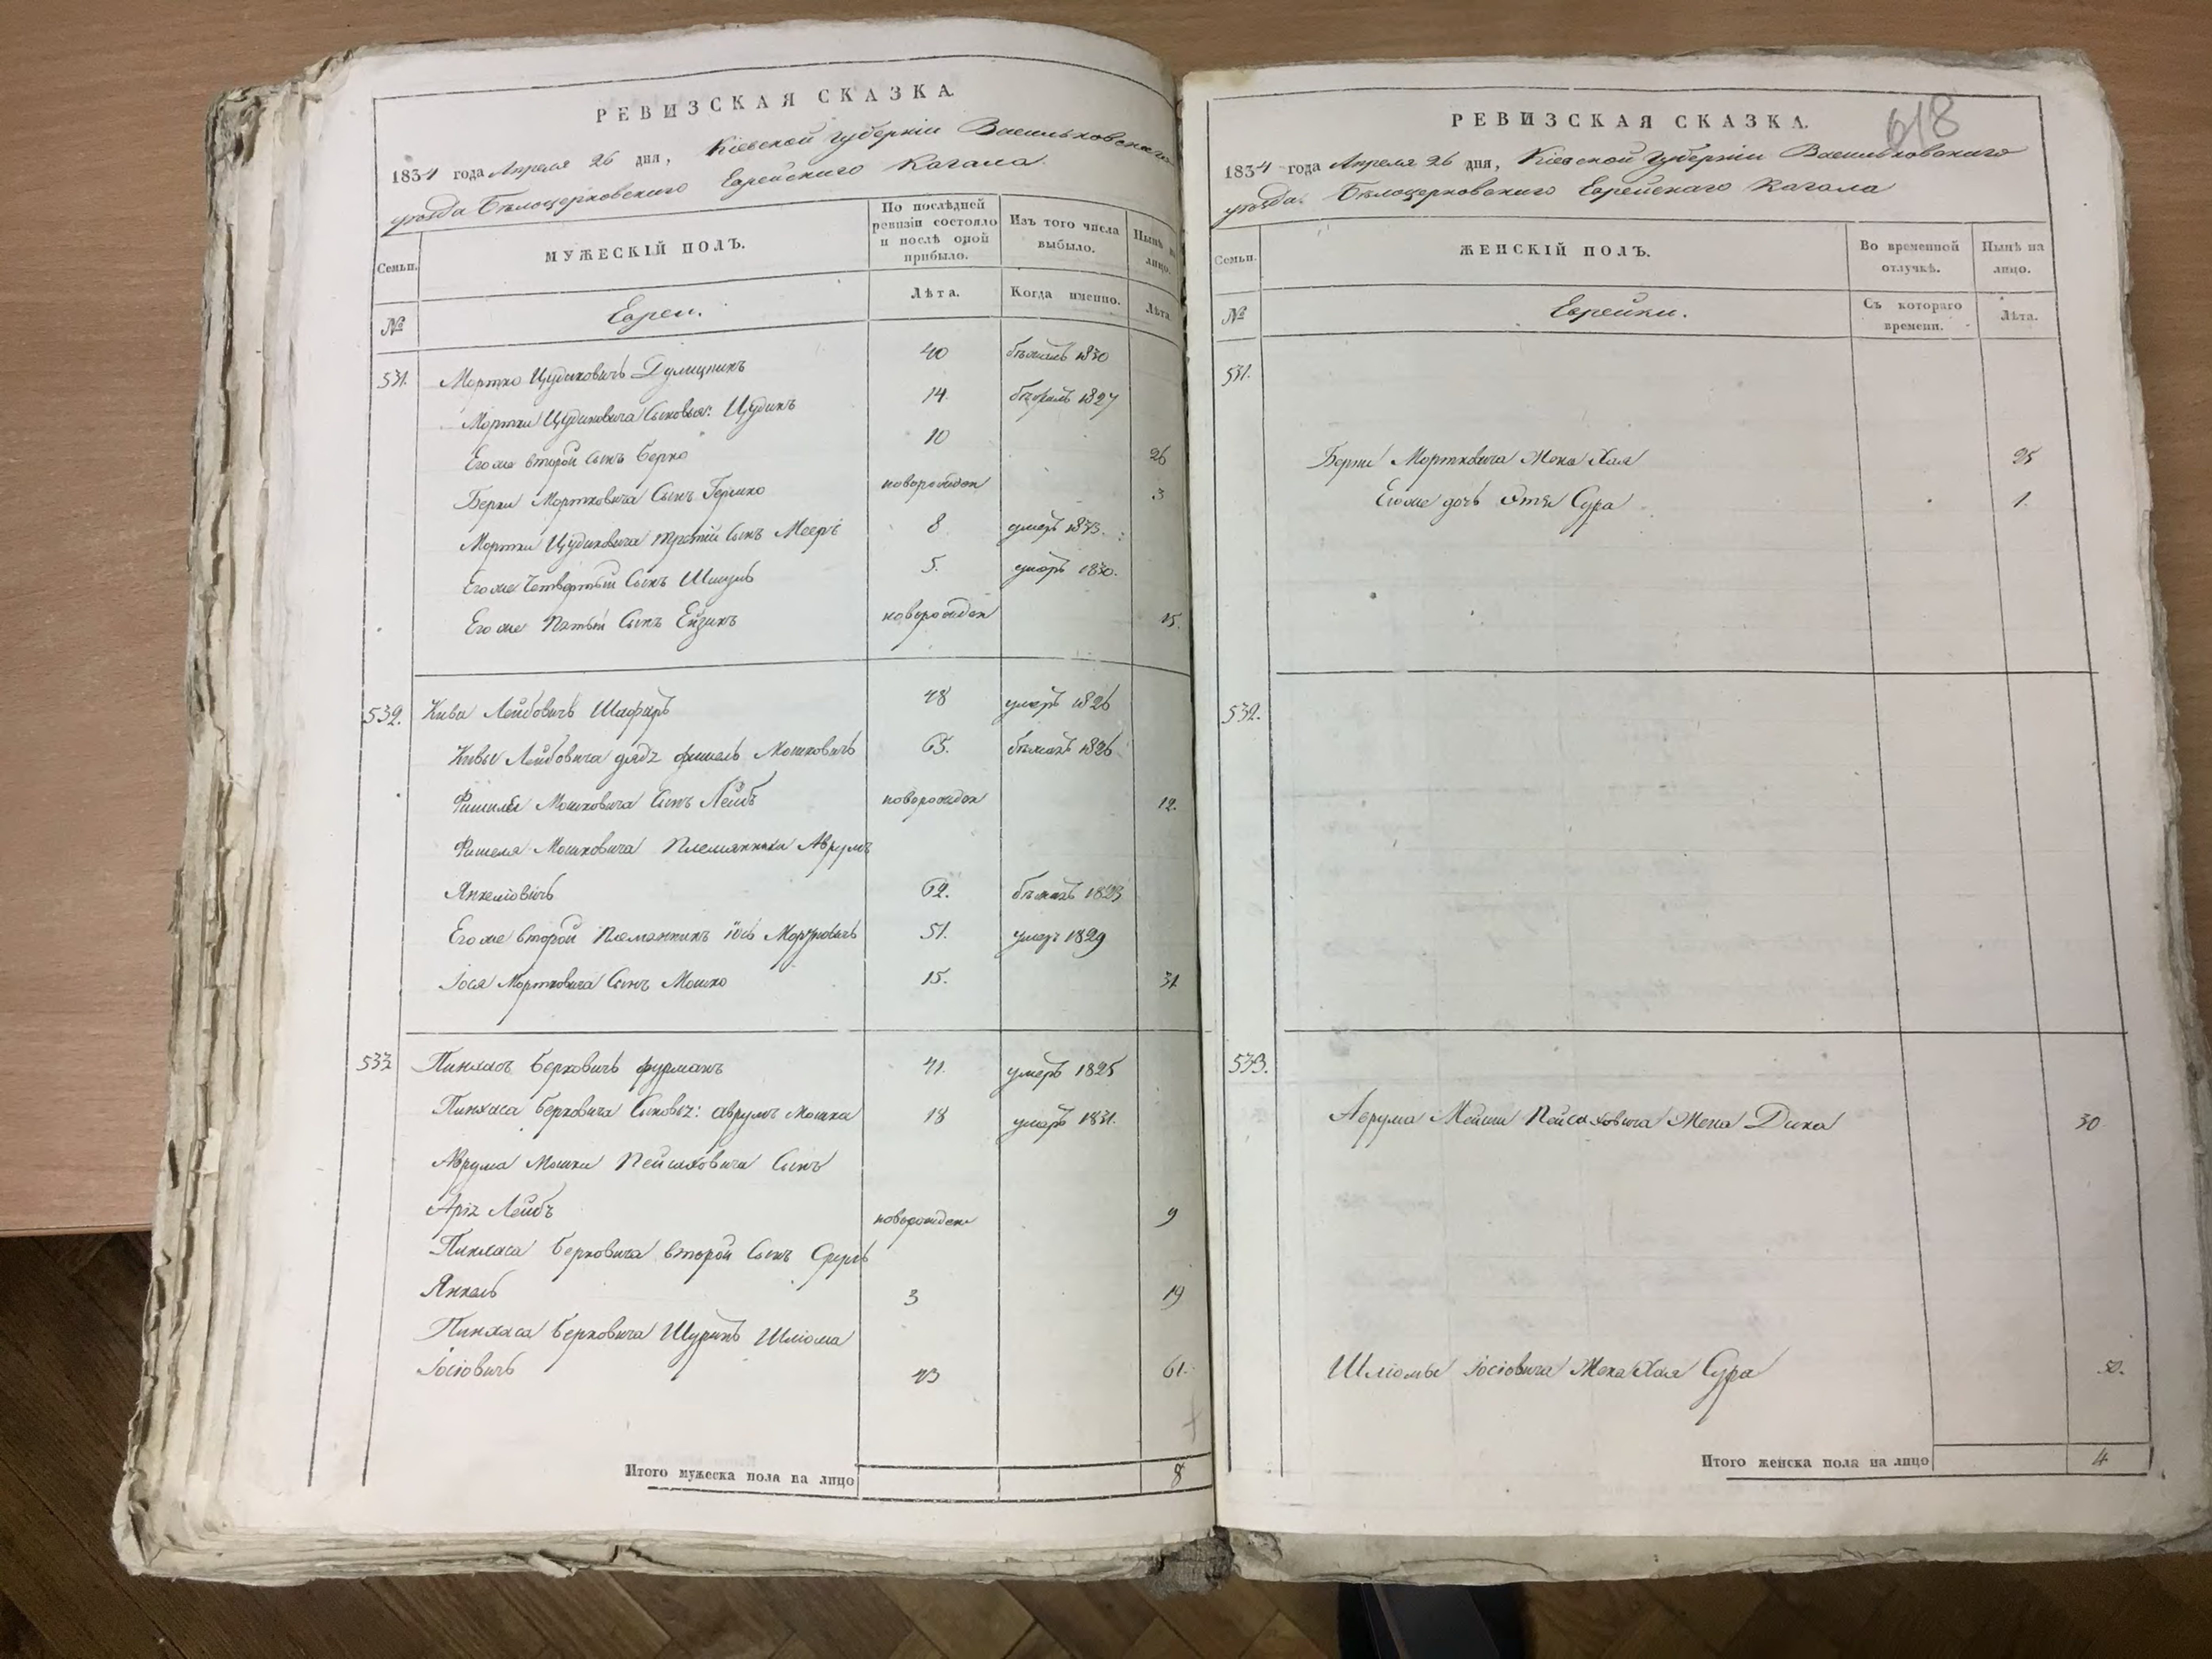 РЕВИЗСКАЯ СКАЗКА.
1834 года Апреля 26 дня, Кіевской Губерніи Васильковскаго
уезда Бѣлоцерковскаго Еврейскаго Кагала.
Семьи.
МУЖЕСКІЙ ПОЛЪ.
По послѣдней ревизіи состояло и послѣ оной прибыло.
Изъ того числа выбыло.
Нынѣ на лицо.
№
Евреи.
Лѣта.
Когда именно.
Лѣта.
531. Мортко Цудиковичъ Дулицкикъ 40 1830
Мортки Цудиковича Сыновья: Цудикъ 14. 1827
Его же второй сынъ Берко 10 26
Берки Мортковича Сынъ Гершко новорожден 3
Мортки Цудиковича третій Сынъ Мееръ 8 умеръ 1833.
Его же Четвертый Сынъ Шмуль 5. умеръ 1830.
Его же Пятый Сынъ Ейзикъ новорожден 15.
532. Кива Лейбовичъ Шафиръ 48 умеръ 1826
Кивы Лейбовича дядя фишель Мошковичъ 65. бѣжалъ 1826
Фишеля Мошковича Сынъ Лейбъ новорожден 12.
Фишеля Мошковича Племянника Аврумъ
Янкеліовичъ 62. бѣжалъ 1823
Его же второй Племянникъ Іось Мортковичъ 51. умеръ 1829
Іося Мортковича Сынъ Мошко 15. 31
533 Пинхасъ Берковичъ фурманъ 41. умеръ 1825
Пинхаса Берковича Сыновья: аврумъ Мошка 18 умеръ 1831.
Аврума Мошки Пейсаховича Сынъ
Арія Лейбъ новорожден 9
Пинхаса Берковича второй Сынъ Сруль
Янкель 3 19
Пинхаса Берковича Шуринъ Шліома
Іосіовичъ 43 61.
Итого мужеска пола на лицо 8
618
РЕВИЗСКАЯ СКАЗКА.
1834 года Апреля 26 дня, Кіевской Губерніи Васильковскаго
уезда. Бѣлоцерковскаго Еврейскаго Кагала
Семьи.
ЖЕНСКІЙ ПОЛЪ.
Во временной отлучкѣ.
Нынѣ на лицо.
№
Еврейки.
Съ котораго времени.
Лѣта.
531.
Берки Мортковича Жена Хая 25
Его же дочь Сура 1.
532.
533.
Аврума Мошки Пейсаховича Жена 30
Шліомы Іосіовича Жена Хая Сура 50.
Итого женска пола на лицо 4